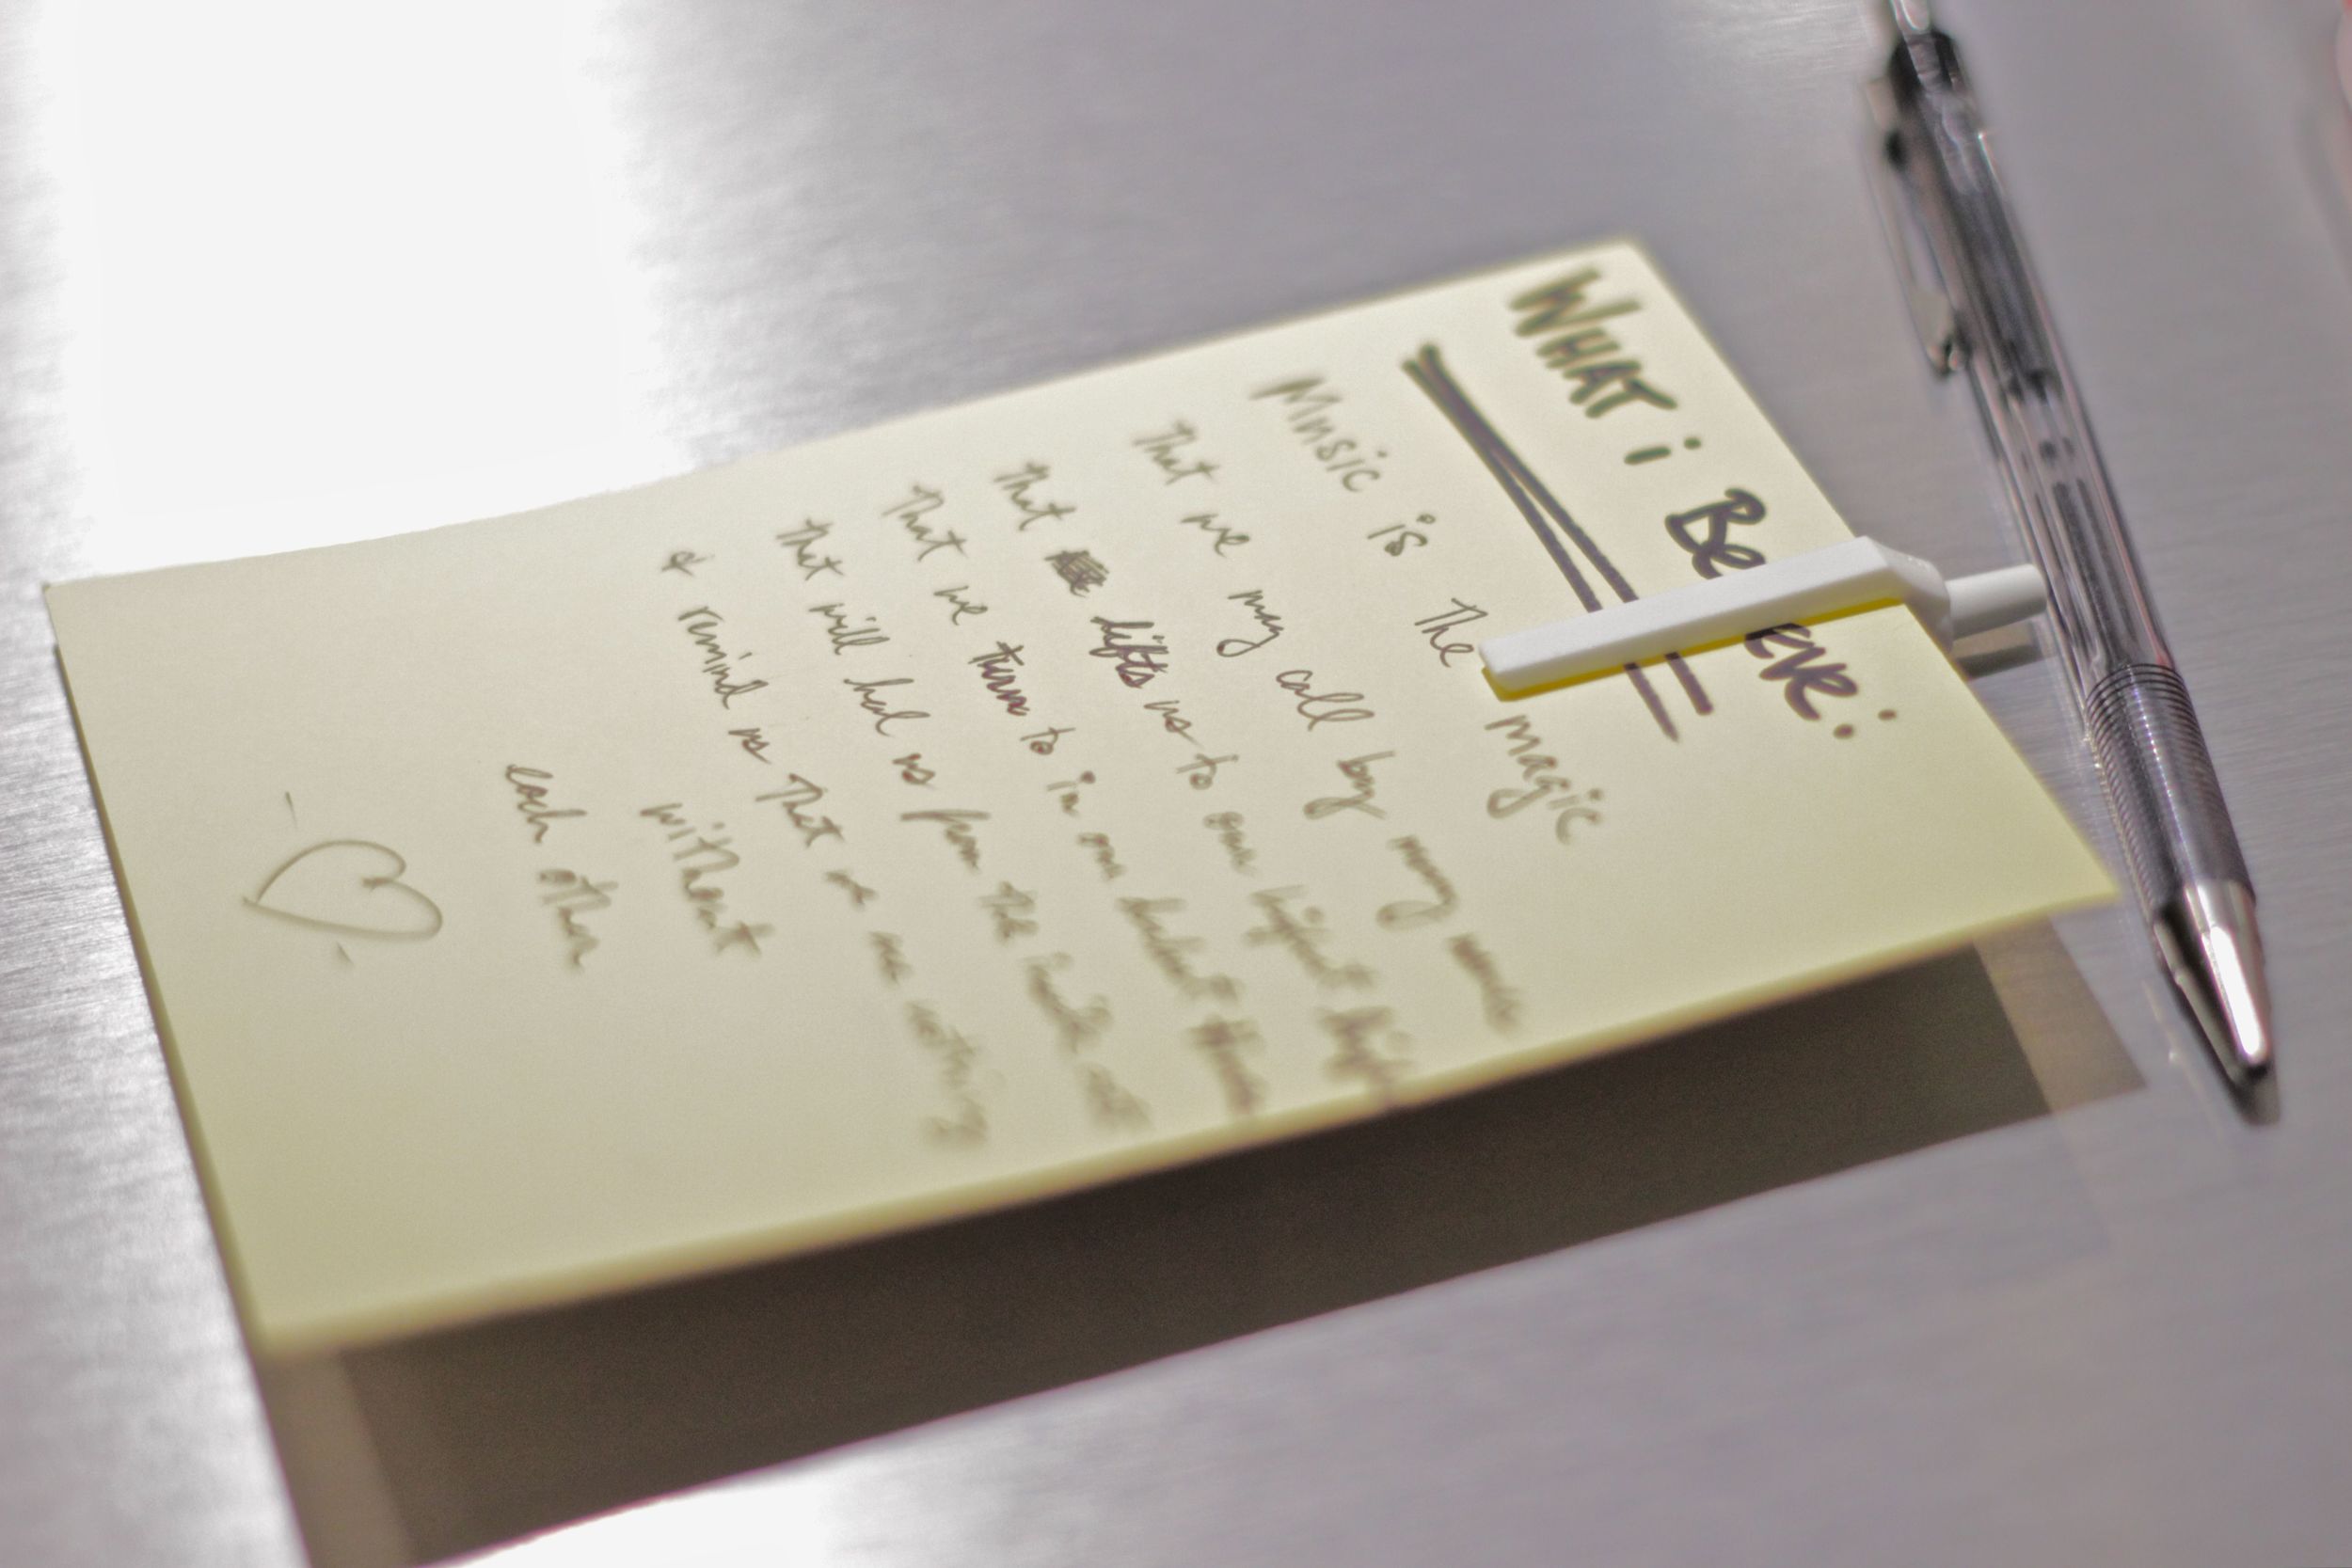 WHAT i Be eve:
Music is the magic
That we may call by many names
That lifts us to our highest highs
That we turn to in our darkest times
That will heal us from the inside out
& remind us that we are nothing
without
each other